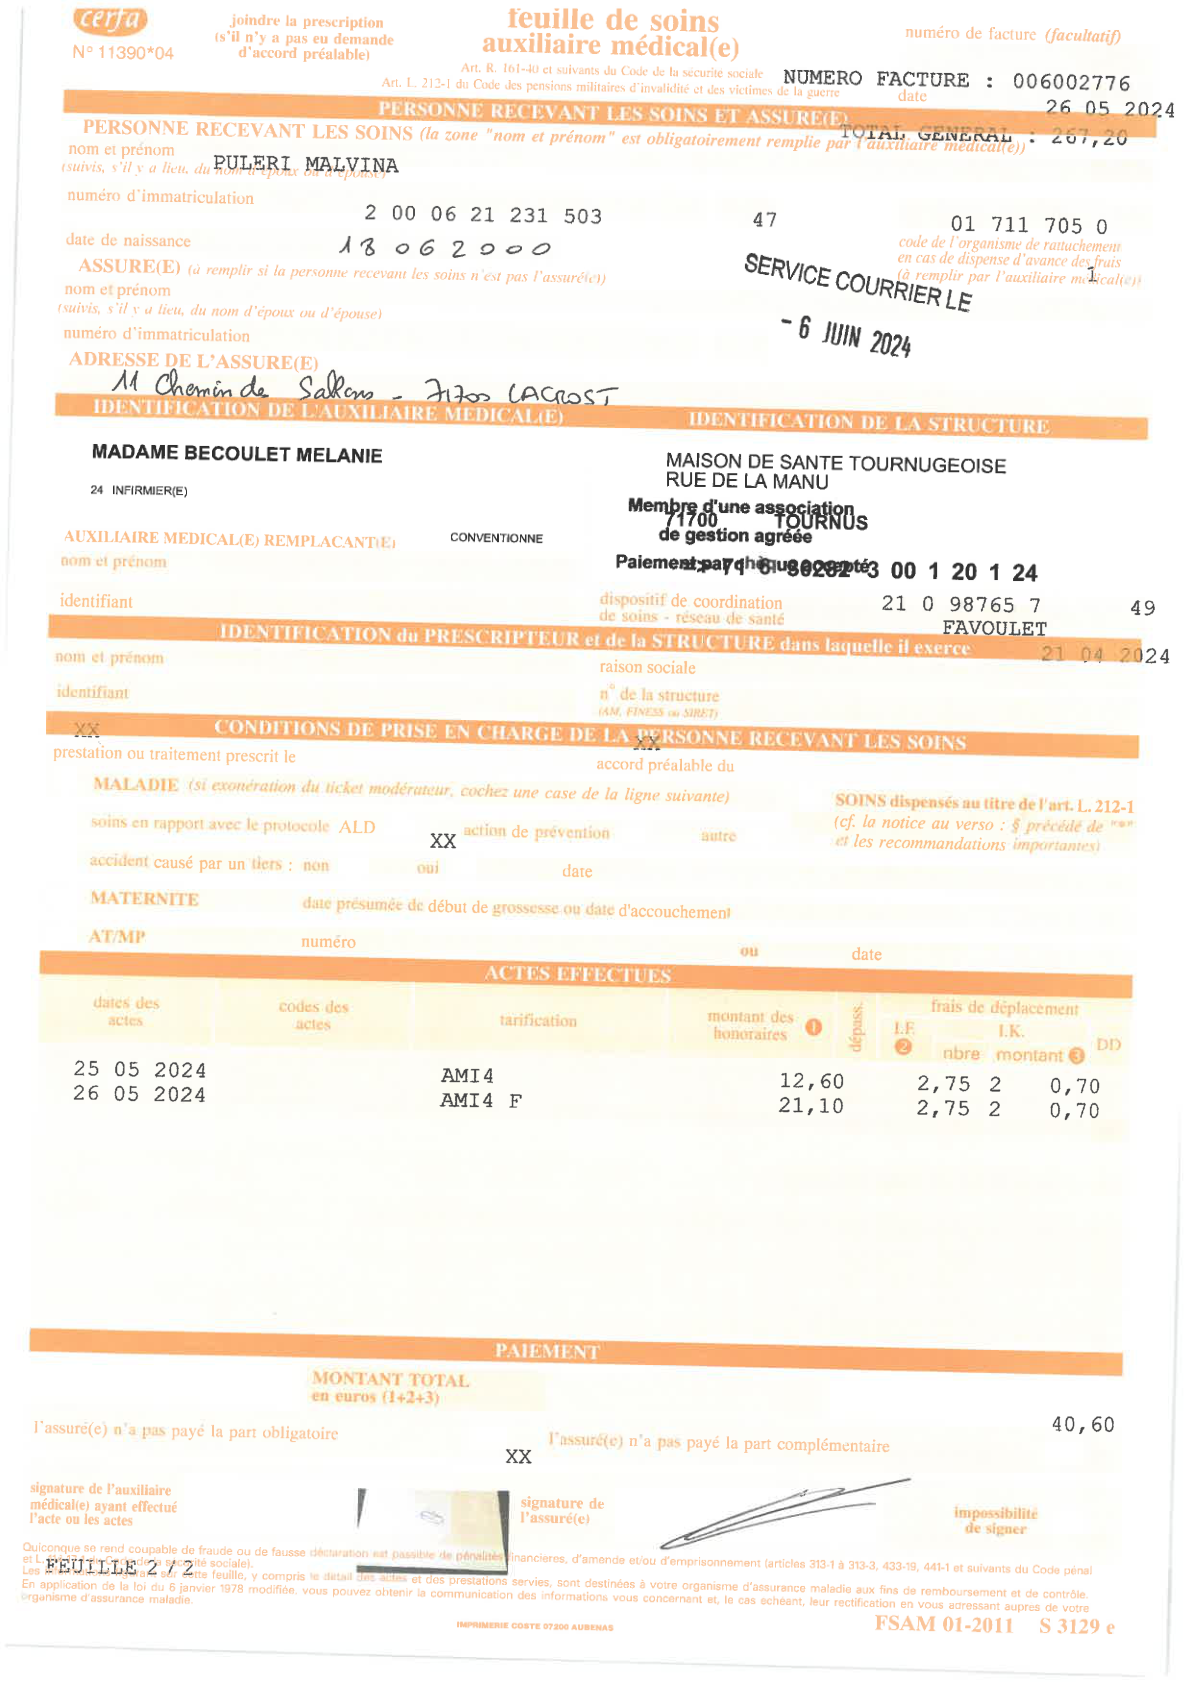 cerfa
N° 11390*04
joindre la prescription
(s'il n'y a pas eu demande
d'accord préalable)
feuille de soins
auxiliaire médical(e)
Art. R. 161-40 et suivants du Code de la sécurité sociale
Art. L. 212-1 du Code des pensions militaires d'invalidité et des victimes de la guerre
numéro de facture (facultatif)
NUMERO FACTURE : 006002776
date
26 05 2024
PERSONNE RECEVANT LES SOINS ET ASSURE(E)
TOTAL GENERAL : 267,20
PERSONNE RECEVANT LES SOINS (la zone "nom et prénom" est obligatoirement remplie par l'auxiliaire médical(e))
nom et prénom
(suivis, s'il y a lieu, du nom d'époux ou d'épouse)
PULERI MALVINA
numéro d'immatriculation
2 00 06 21 231 503 47 01 711 705 0
date de naissance
18 06 2000
code de l'organisme de rattachement
en cas de dispense d'avance des frais
(à remplir par l'auxiliaire médical(e))
1
ASSURE(E) (à remplir si la personne recevant les soins n'est pas l'assuré(e))
nom et prénom
(suivis, s'il y a lieu, du nom d'époux ou d'épouse)
SERVICE COURRIER LE
- 6 JUIN 2024
numéro d'immatriculation
ADRESSE DE L'ASSURE(E)
11 Chemin de - 71700 LACROST
IDENTIFICATION DE L'AUXILIAIRE MEDICAL(E)
IDENTIFICATION DE LA STRUCTURE
MADAME BECOULET MELANIE
24 INFIRMIER(E)
MAISON DE SANTE TOURNUGEOISE
RUE DE LA MANU
Membre d'une association
71700 TOURNUS
de gestion agréée
AUXILIAIRE MEDICAL(E) REMPLACANT(E)
CONVENTIONNE
nom et prénom
Paiement par chèque accepté
71 6 3 00 1 20 1 24
identifiant
dispositif de coordination
de soins - réseau de santé
21 0 98765 7 49
FAVOULET
IDENTIFICATION du PRESCRIPTEUR et de la STRUCTURE dans laquelle il exerce
21 04 2024
nom et prénom
raison sociale
identifiant
n° de la structure
(AM, FINESS ou SIRET)
CONDITIONS DE PRISE EN CHARGE DE LA PERSONNE RECEVANT LES SOINS
XX XX
prestation ou traitement prescrit le
accord préalable du
MALADIE (si exonération du ticket modérateur, cochez une case de la ligne suivante)
SOINS dispensés au titre de l'art. L. 212-1
(cf. la notice au verso : § précédé de "*"
et les recommandations importantes)
soins en rapport avec le protocole ALD
XX
action de prévention
autre
accident causé par un tiers : non oui date
MATERNITE date présumée de début de grossesse ou date d'accouchement
AT/MP numéro ou date
ACTES EFFECTUES
dates des
actes
codes des
actes
tarification
montant des
honoraires 1
dépass.
frais de déplacement
I.F.
2
I.K.
nbre montant 3
DD
25 05 2024 AMI4 12,60 2,75 2 0,70
26 05 2024 AMI4 F 21,10 2,75 2 0,70
PAIEMENT
MONTANT TOTAL
en euros (1+2+3)
40,60
l'assuré(e) n'a pas payé la part obligatoire
XX
l'assuré(e) n'a pas payé la part complémentaire
signature de l'auxiliaire
médical(e) ayant effectué
l'acte ou les actes
signature de
l'assuré(e)
impossibilité
de signer
Quiconque se rend coupable de fraude ou de fausse déclaration est passible de pénalités financières, d'amende et/ou d'emprisonnement (articles 313-1 à 313-3, 433-19, 441-1 et suivants du Code pénal
et L. du Code de la sécurité sociale).
FEUILLE 2 / 2
Les sur cette feuille, y compris le détail des actes et des prestations servies, sont destinées à votre organisme d'assurance maladie aux fins de remboursement et de contrôle.
En application de la loi du 6 janvier 1978 modifiée, vous pouvez obtenir la communication des informations vous concernant et, le cas échéant, leur rectification en vous adressant auprès de votre
organisme d'assurance maladie.
IMPRIMERIE COSTE 07200 AUBENAS
FSAM 01-2011 S 3129 e